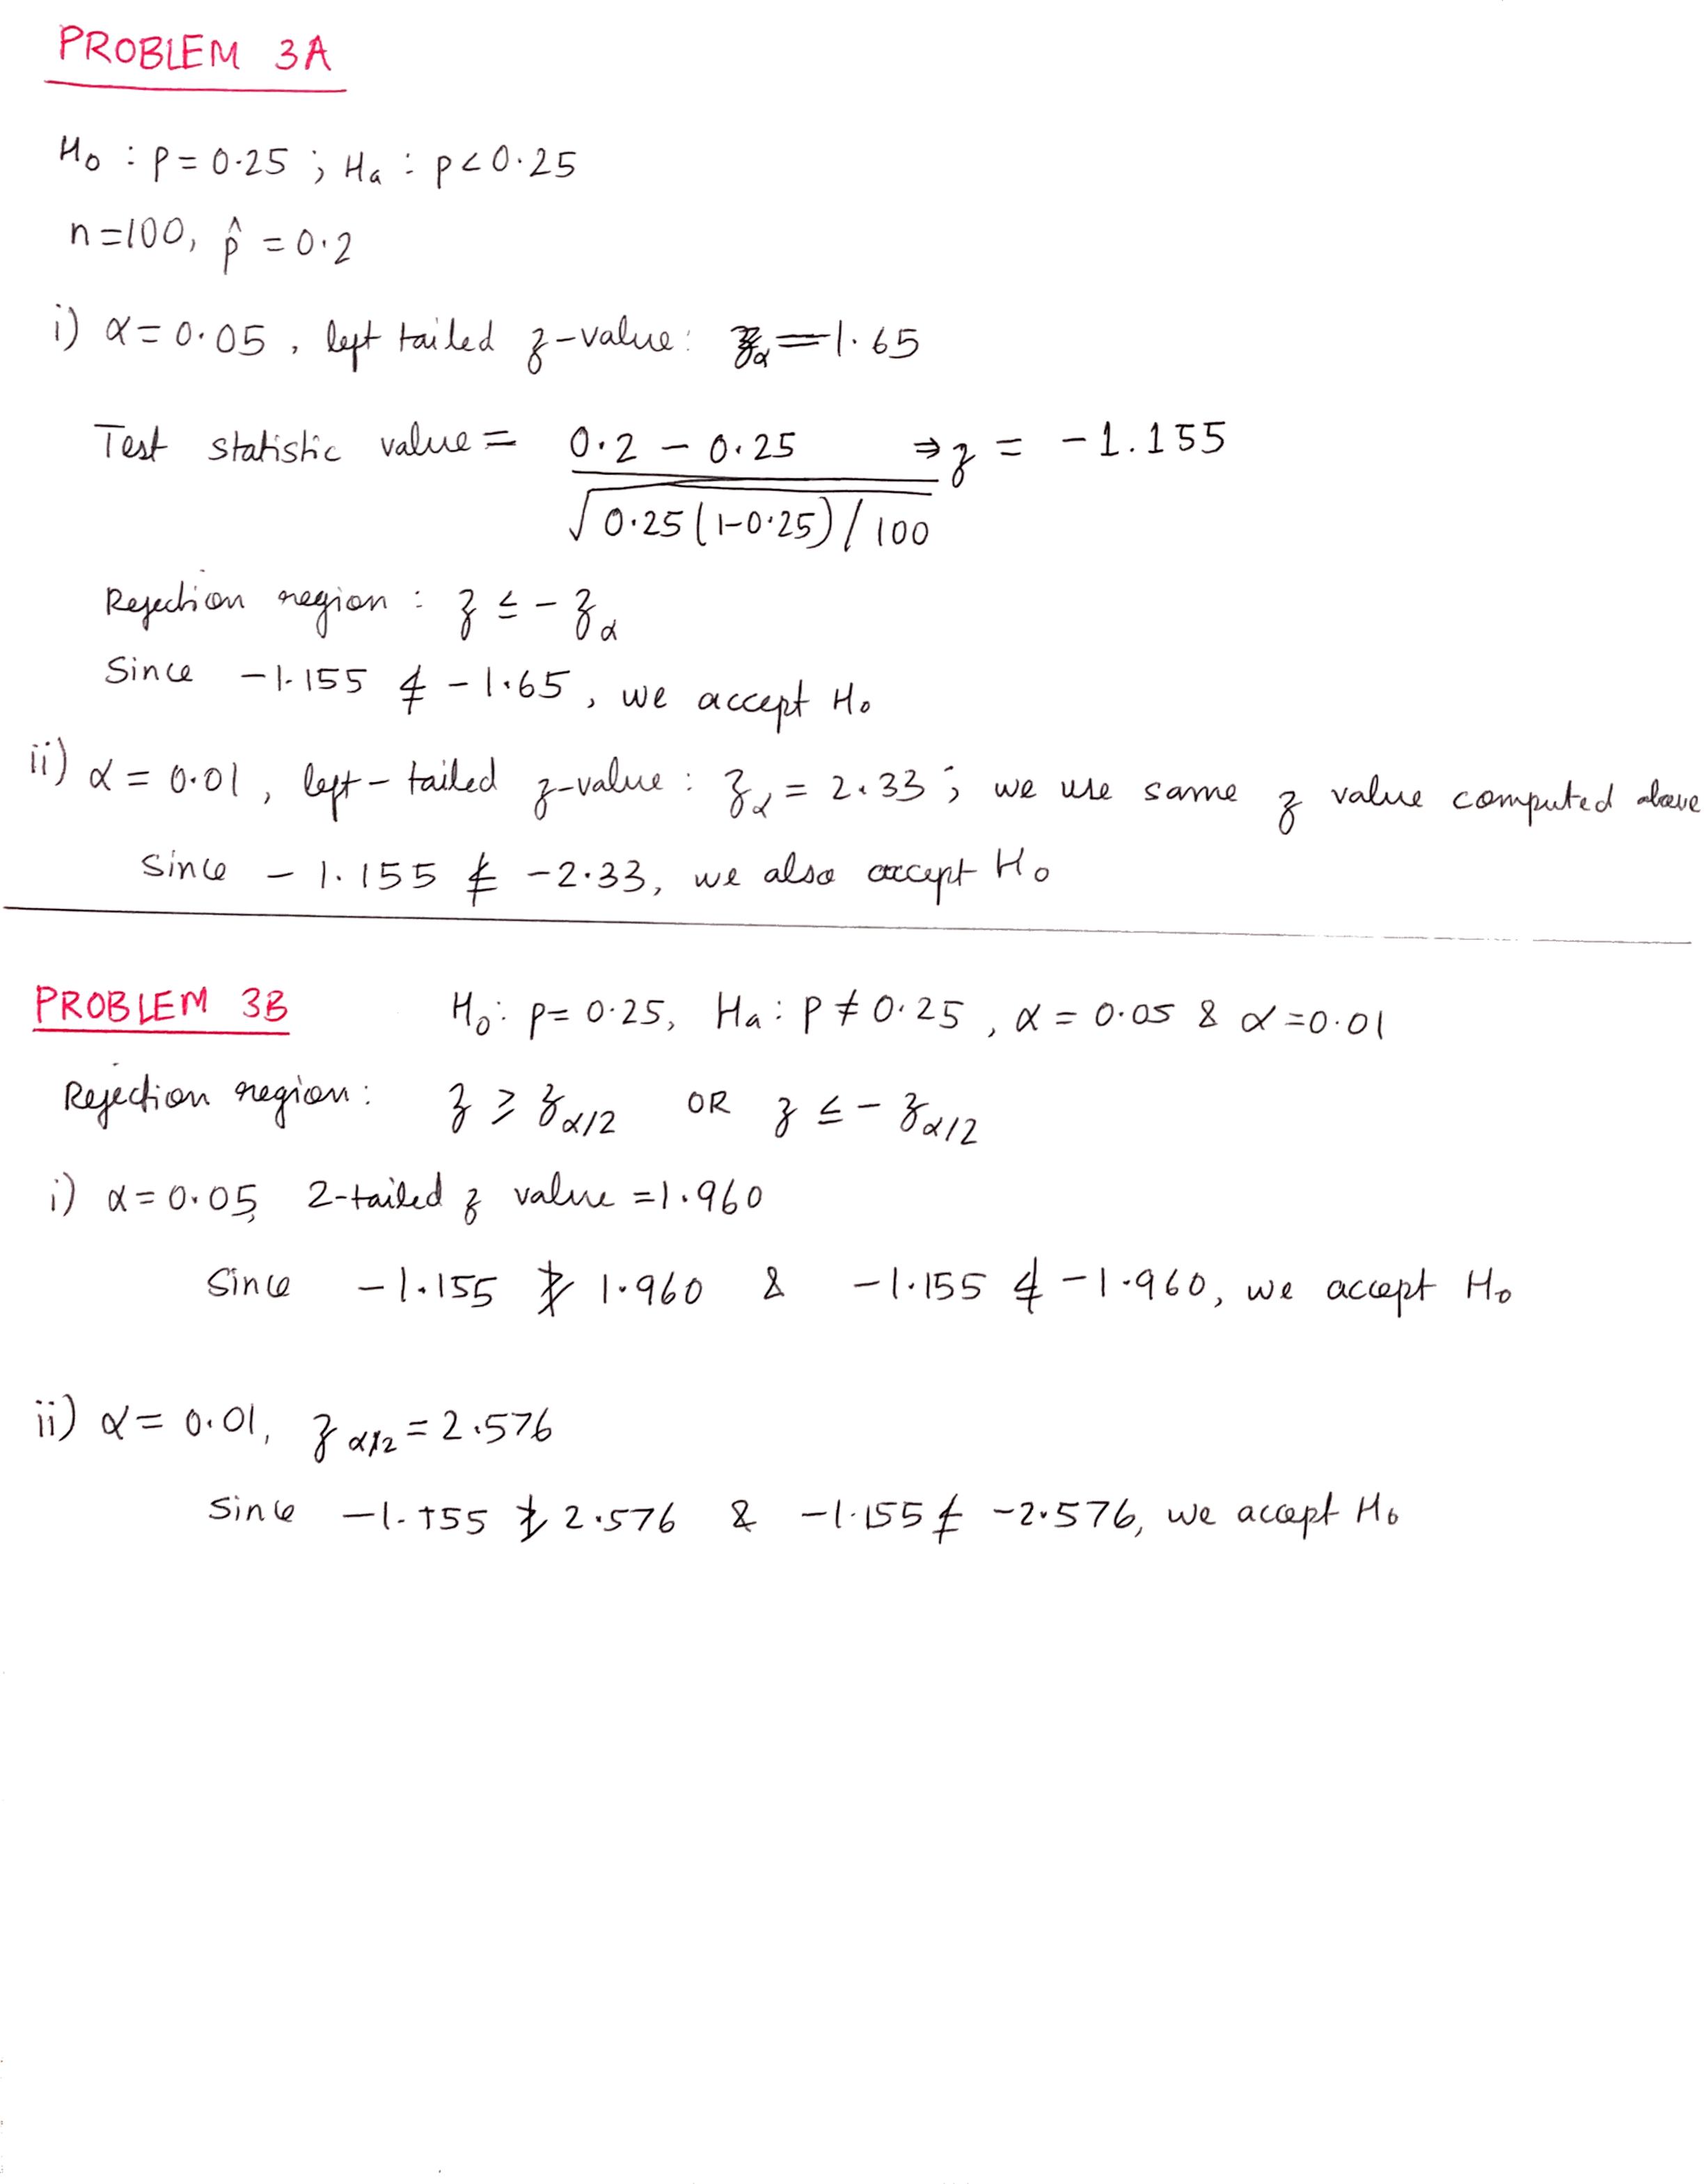 PROBLEM 3A
H₀ : p = 0.25 ; Hₐ : p < 0.25
n=100, p̂ = 0.2
i) α = 0.05, left tailed z-value: z_α = 1.65
Test statistic value = (0.2 - 0.25) / √(0.25(1-0.25)/100) ⇒ z = -1.155
Rejection region : z ≤ -z_α
Since -1.155 ≰ -1.65, we accept H₀
ii) α = 0.01, left-tailed z-value : z_α = 2.33 ; we use same z value computed above
Since -1.155 ≰ -2.33, we also accept H₀
PROBLEM 3B H₀: p = 0.25, Hₐ: p ≠ 0.25, α = 0.05 & α = 0.01
Rejection region: z ≥ z_α/2 OR z ≤ -z_α/2
i) α = 0.05, 2-tailed z value = 1.960
Since -1.155 ≱ 1.960 & -1.155 ≰ -1.960, we accept H₀
ii) α = 0.01, z_α/2 = 2.576
Since -1.155 ≱ 2.576 & -1.155 ≰ -2.576, we accept H₀